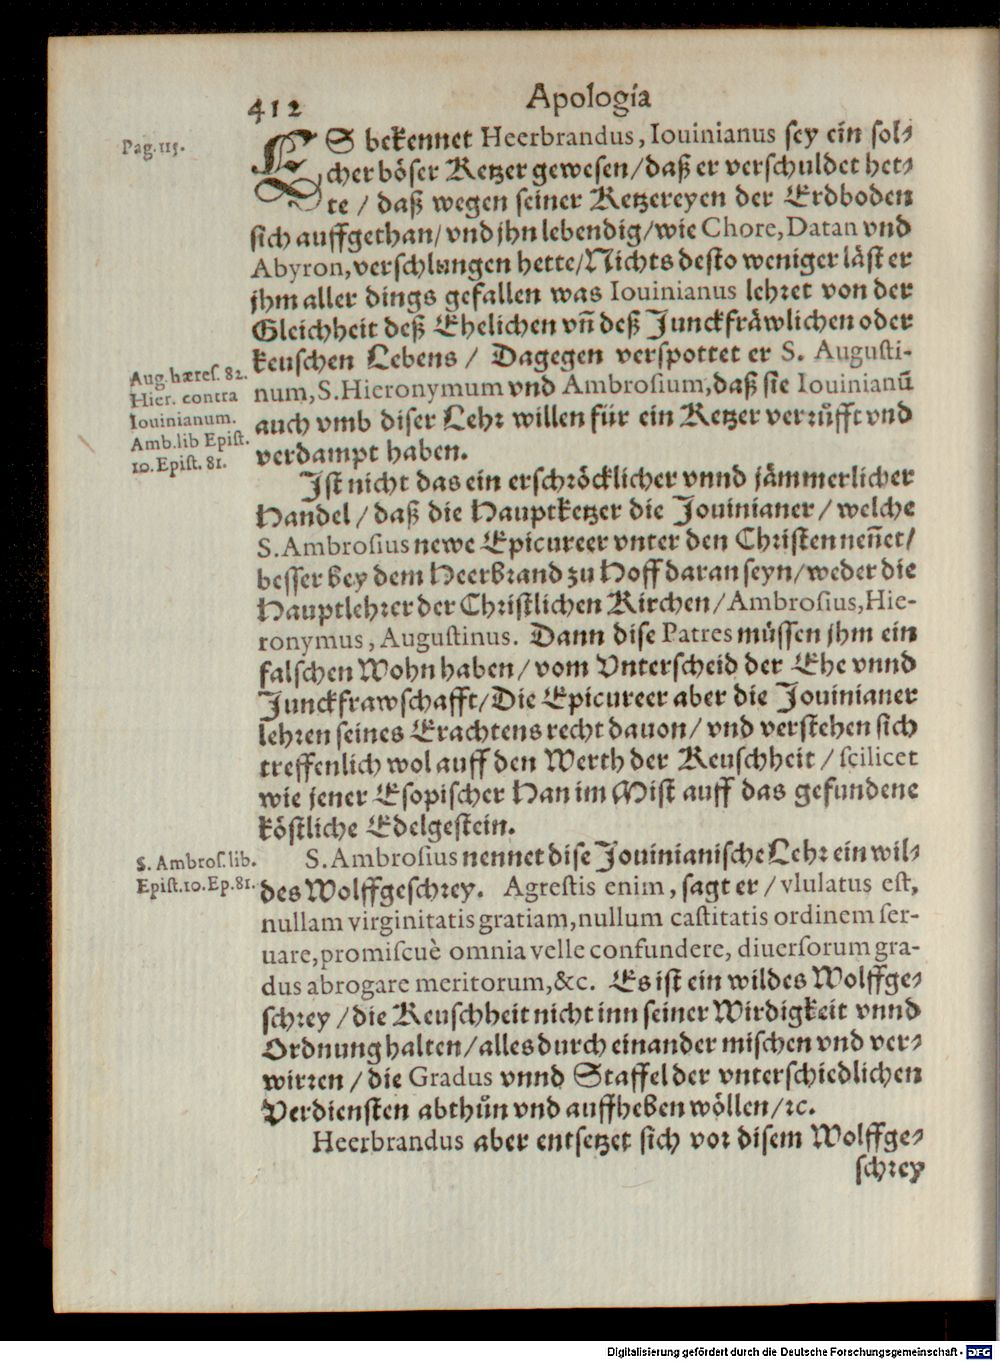 412 Apologia
Pag. 115.
ES bekennet Heerbrandus, Iouinianus sey ein sol⸗
cher böser Ketzer gewesen / daß er verschuldet het⸗
te / daß wegen seiner Ketzereyen der Erdboden
sich auffgethan / vnd jhn lebendig / wie Chore, Datan vnd
Abyron, verschlungen hette / Nichts desto weniger läst er
jhm aller dings gefallen was Iouinianus lehret von der
Gleichheit deß Ehelichen vñ deß Junckfräwlichen oder
keuschen Lebens / Dagegen verspottet er S. Augusti-
num, S. Hieronymum vnd Ambrosium, daß sie Iouinianū
auch vmb diser Lehr willen für ein Ketzer verrůfft vnd
verdampt haben.
Aug. hæres. 82.
Hier. contra
Iouinianum.
Amb. lib Epist.
10. Epist. 81.
Ist nicht das ein erschröcklicher vnnd jämmerlicher
Handel / daß die Hauptketzer die Jouinianer / welche
S. Ambrosius newe Epicureer vnter den Christen neñet /
besser bey dem Heerbrand zu Hoff daran seyn / weder die
Hauptlehrer der Christlichen Kirchen / Ambrosius, Hie-
ronymus, Augustinus. Dann dise Patres müssen jhm ein
falschen Wohn haben / vom Vnterscheid der Ehe vnnd
Junckfrawschafft / Die Epicureer aber die Jouinianer
lehren seines Erachtens recht dauon / vnd verstehen sich
treffenlich wol auff den Werth der Keuschheit / scilicet
wie jener Esopischer Han im Mist auff das gefundene
köstliche Edelgestein.
S. Ambros. lib.
Epist. 10. Ep. 81.
S. Ambrosius nennet dise Jouinianische Lehr ein wil⸗
des Wolffgeschrey. Agrestis enim, sagt er / vlulatus est,
nullam virginitatis gratiam, nullum castitatis ordinem ser-
uare, promiscuè omnia velle confundere, diuersorum gra-
dus abrogare meritorum, &c. Es ist ein wildes Wolffge⸗
schrey / die Keuschheit nicht inn seiner Wirdigkeit vnnd
Ordnung halten / alles durch einander mischen vnd ver⸗
wirren / die Gradus vnnd Staffel der vnterschiedlichen
Verdiensten abthůn vnd auffheben wöllen / ꝛc.
Heerbrandus aber entsetzet sich vor disem Wolffge⸗
schrey
Digitalisierung gefördert durch die Deutsche Forschungsgemeinschaft - DFG